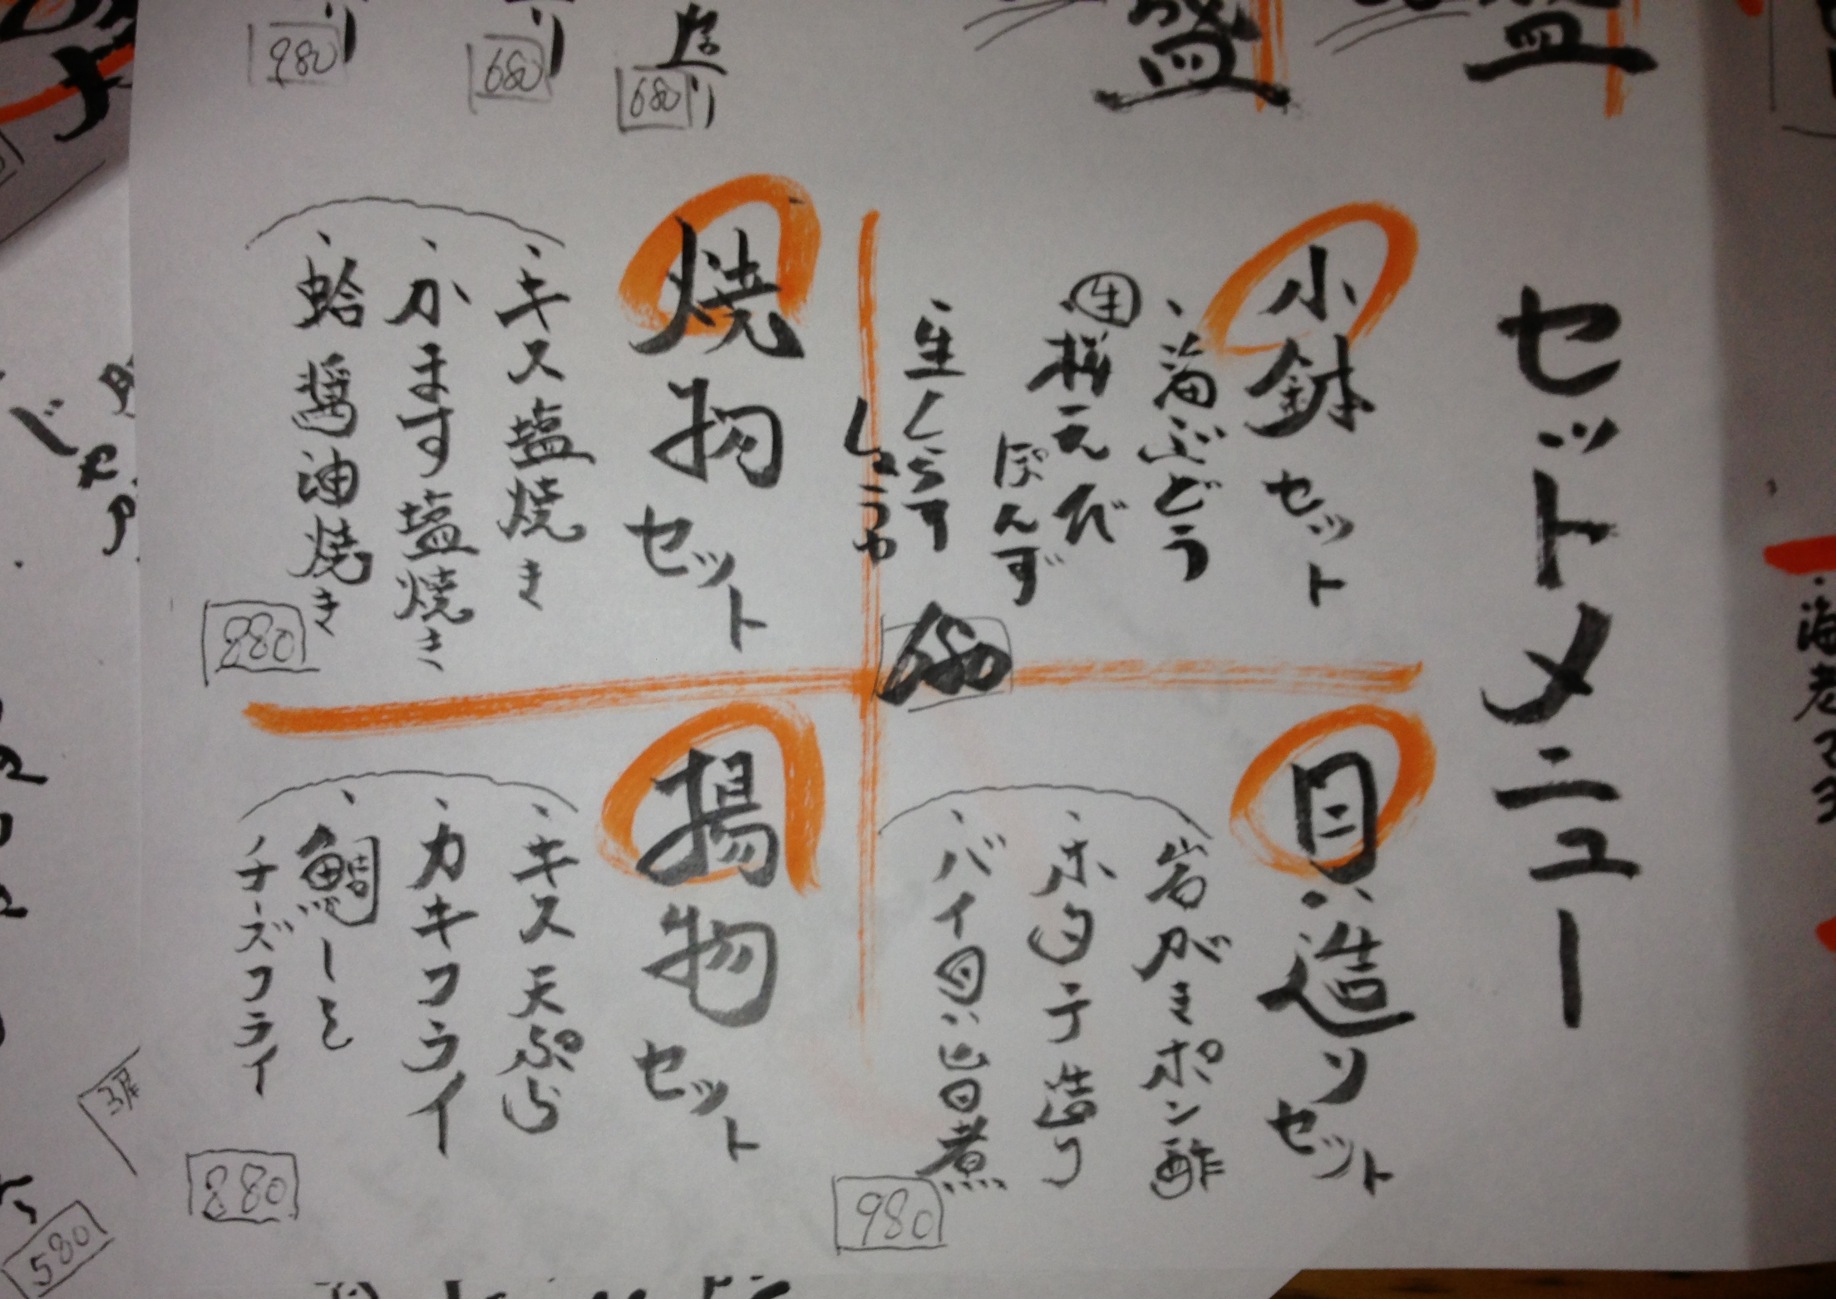 盛
盛
造り
680
680
980
セットメニュー
小鉢セット
、海ぶどう
、生桜えび
ぽんず
、生しらす
しょうゆ
焼物セット
、キス塩焼き
、かます塩焼き
、蛤醤油焼き
880
貝造りセット
岩がきポン酢
、ホタテ造り
、バイ貝旨煮
980
揚物セット
、キス天ぷら
、カキフライ
、鯛しそ
チーズフライ
880
580